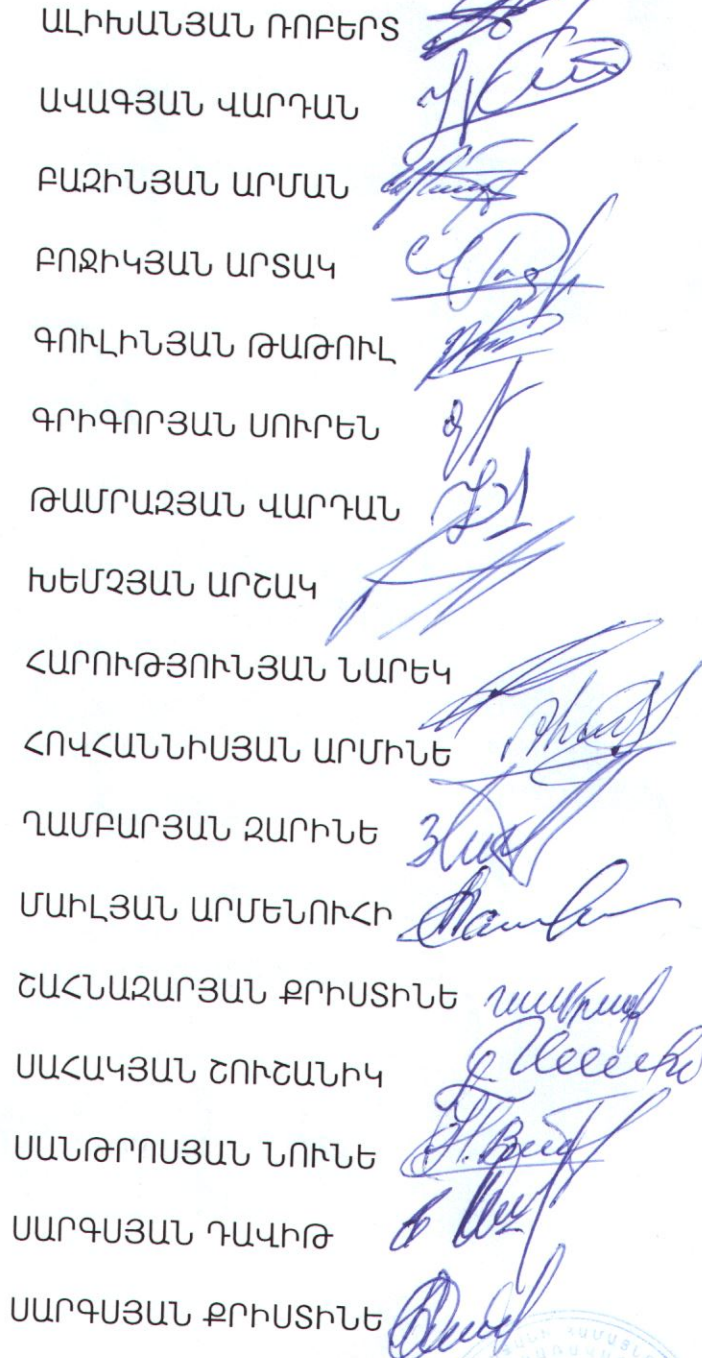 ԱԼԻԽԱՆՅԱՆ ՌՈԲԵՐՏ
ԱՎԱԳՅԱՆ ՎԱՐԴԱՆ
ԲԱԶԻՆՅԱՆ ԱՐՄԱՆ
ԲՈՋԻԿՅԱՆ ԱՐՏԱԿ
ԳՈՒԼԻՆՅԱՆ ԹԱԹՈՒԼ
ԳՐԻԳՈՐՅԱՆ ՍՈՒՐԵՆ
ԹԱՄՐԱԶՅԱՆ ՎԱՐԴԱՆ
ԽԵՄՉՅԱՆ ԱՐՇԱԿ
ՀԱՐՈՒԹՅՈՒՆՅԱՆ ՆԱՐԵԿ
ՀՈՎՀԱՆՆԻՍՅԱՆ ԱՐՄԻՆԵ
ՂԱՄԲԱՐՅԱՆ ԶԱՐԻՆԵ
ՄԱԻԼՅԱՆ ԱՐՄԵՆՈՒՀԻ
ՇԱՀՆԱԶԱՐՅԱՆ ՔՐԻՍՏԻՆԵ
ՍԱՀԱԿՅԱՆ ՇՈՒՇԱՆԻԿ
ՍԱՆԹՐՈՍՅԱՆ ՆՈՒՆԵ
ՍԱՐԳՍՅԱՆ ԴԱՎԻԹ
ՍԱՐԳՍՅԱՆ ՔՐԻՍՏԻՆԵ